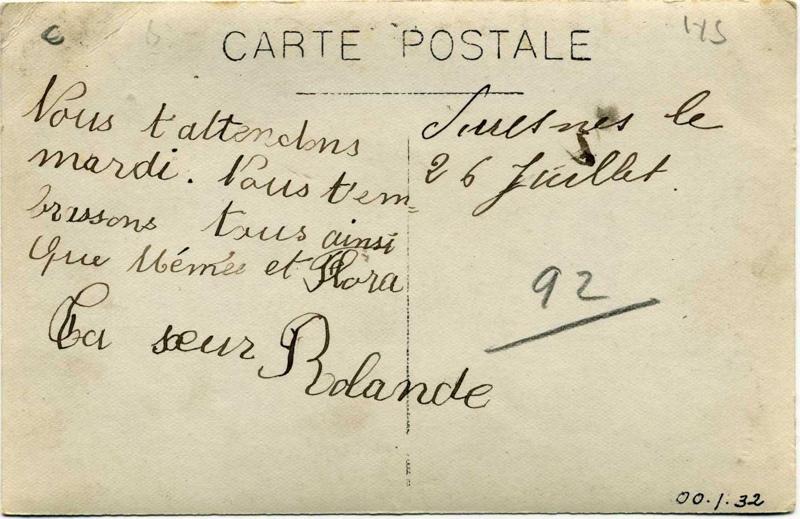 CARTE POSTALE
Nous t'attendons
mardi. Nous t'em=
brassons tous ainsi
que Mémée et Flora
Ta sœur Rolande
Suresnes le
26 Juillet.
92
145
00.1.32